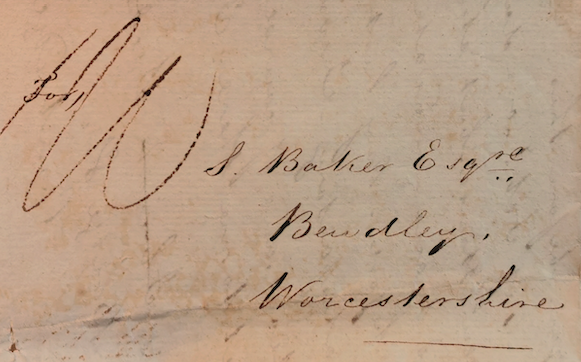 For,
S. Baker Esqre
Bewdley.
Worcestershire